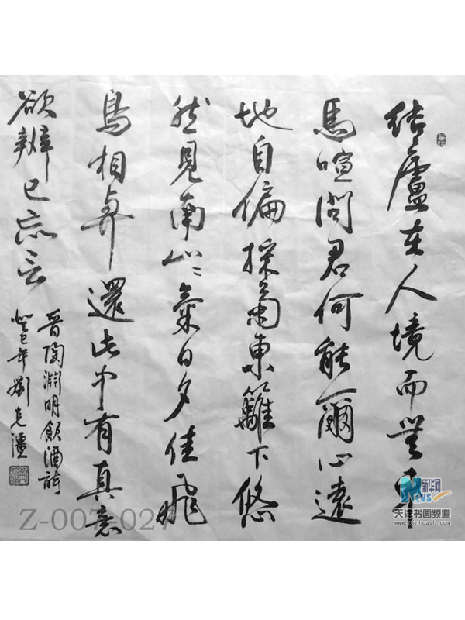 結廬在人境而無車
馬喧問君何能爾心遠
地自偏採菊東籬下悠
然見南山〻氣日夕佳飛
鳥相與還此中有真意
欲辨已忘言
晉陶淵明飲酒詩
癸巳年劉克
Z-007-02